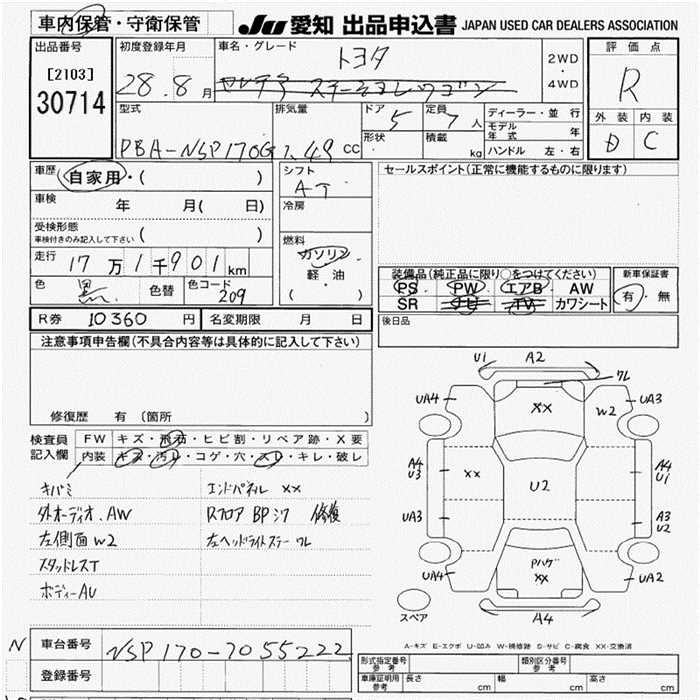 車内保管・守衛保管 JU 愛知 出品申込書 JAPAN USED CAR DEALERS ASSOCIATION
出品番号 初度登録年月 車名・グレード トヨタ 2WD・4WD 評価点
[2103]
30714
28.8月
R
型式 排気量 ドア 5 定員 7人 ディーラー・並行 外装 内装
モデル年式 年
形状 積載 kg ハンドル 左・右 D C
PBA-NSP170G 1.49 cc
車歴 自家用・( ) シフト AT セールスポイント(正常に機能するものに限ります)
車検 年 月( 日) 冷房
受検形態 ( )
車検付きのみ記入して下さい
燃料 ガソリン
軽・油
( ・ )
走行 17万1千901km
装備品(純正品に限り○をつけてください) 新車保証書
PS PW エアB AW 有・無
SR ナビ TV カワシート
色 黒 色替 色コード 209
後日品
R券 10360円 名変期限 月 日
注意事項申告欄(不具合内容等は具体的に記入して下さい)
修復歴 有(箇所 )
検査員記入欄 FW キズ・飛石・ヒビ割・リペア跡・X要
内装 キズ・汚レ・コゲ・穴・スレ・キレ・破レ
キバミ エンドパネル XX
外オーディオ.AW Rフロア BPシワ 修復
左側面W2 左ヘッドライトステー ワレ
スタッドレスT
ボディーAU
U1 A2
ワレ
UA4 XX W2 UA3
A4 U3 XX U2 A4 U1
UA3 A3 U2
UA4 Pハゲ XX UA2
A4
スペア
A-キズ E-エクボ U-凹み W-補修跡 S-サビ C-腐食 XX-交換済
N 車台番号 NSP170-7055222
登録番号
形式指定番号 参考 類別区分番号 参考
車庫証明用 参考 長さ cm 幅 cm 高さ cm